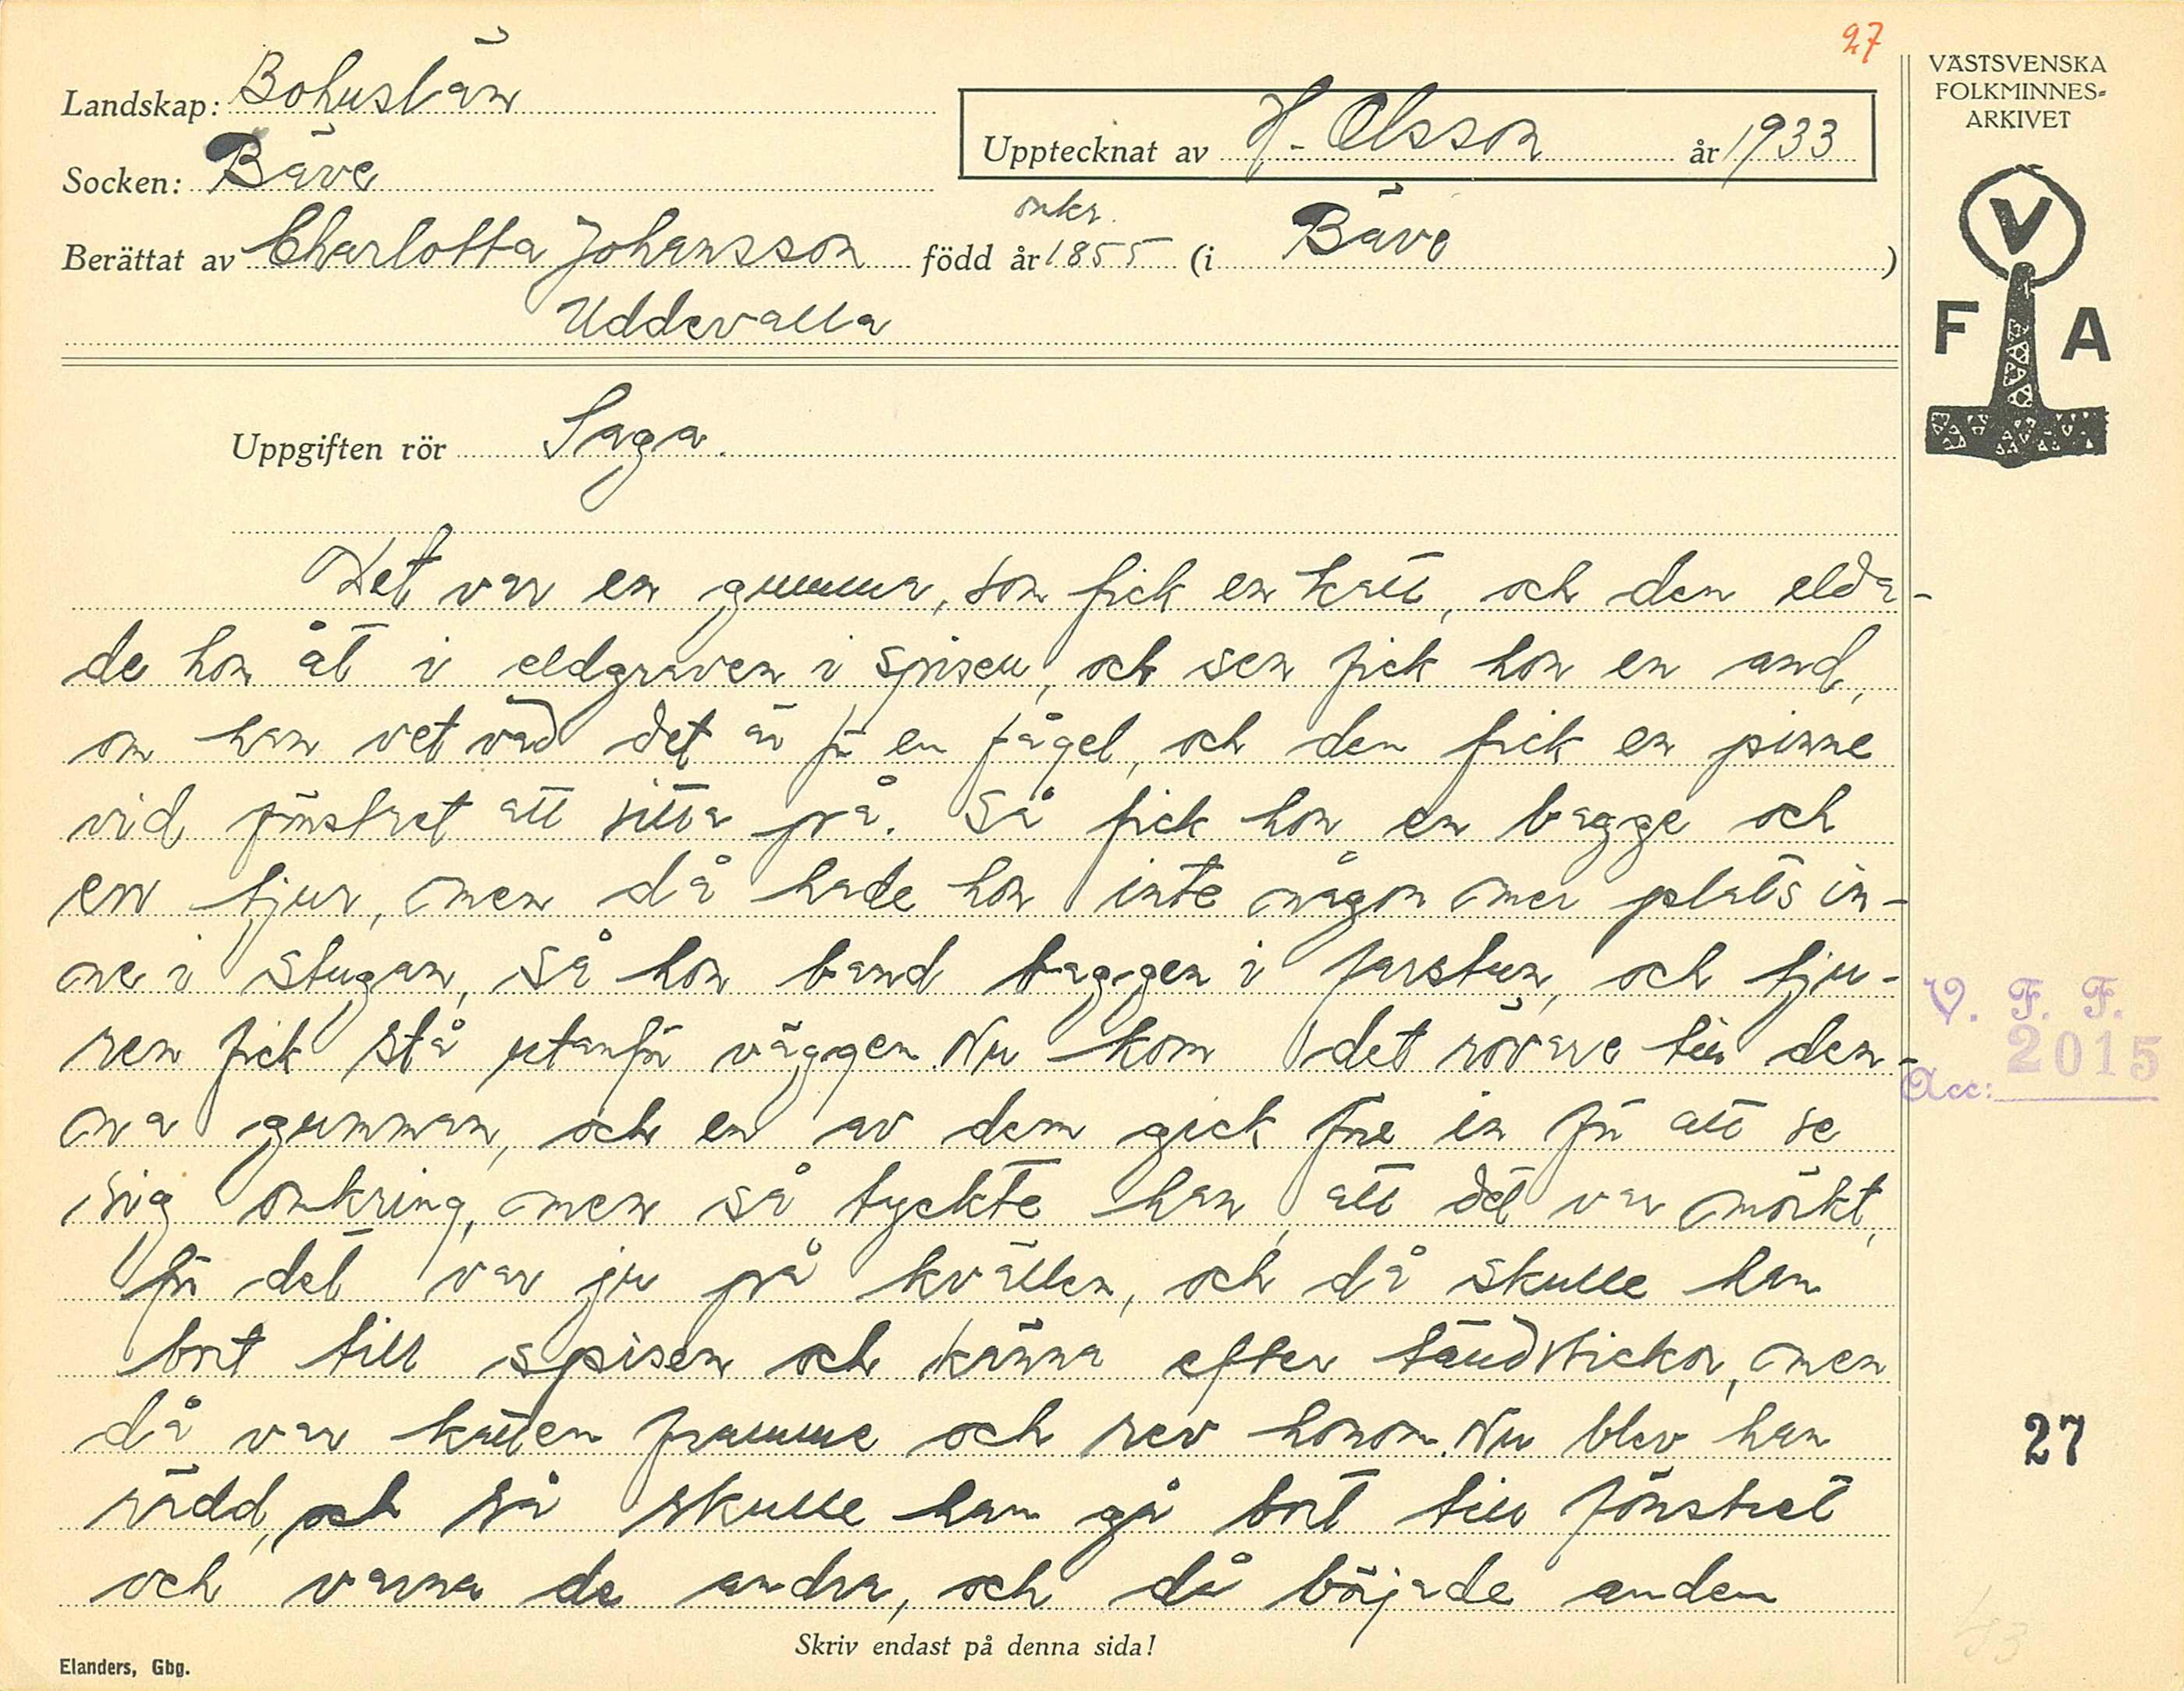 27
VÄSTSVENSKA
FOLKMINNES-
ARKIVET
Landskap: Bohuslän
Upptecknat av H. Olsson år 1933
Socken: Bäve
omkr.
Berättat av Charlotta Johansson född år 1855 (i Bäve)
Uddevalla
V
F A
Uppgiften rör Saga.
Det var en gumma, som fick en katt, och den elda-
de hon åt i eldgraven i spisen, och sen fick hon en and,
om han vet vad det är för en fågel, och den fick en pinne
vid fönstret att sitta på. Så fick hon en bagge och
en tjur, men då hade hon inte någon mer plats in-
ne i stugan, så hon band baggen i farstun, och tju-
ren fick stå utanför väggen. Nu kom det rövare till den-
na gumman, och en av dem gick före in för att se
sig omkring, men så tyckte han, att det var mörkt,
för det var ju på kvällen, och då skulle han
bort till spisen och känna efter tändstickor, men
då var katten framme och rev honom. Nu blev han
rädd, och så skulle han gå bort till fönstret
och varna de andra, och då började anden
V. F. F.
Acc: 2015
27
Skriv endast på denna sida!
Elanders, Gbg.